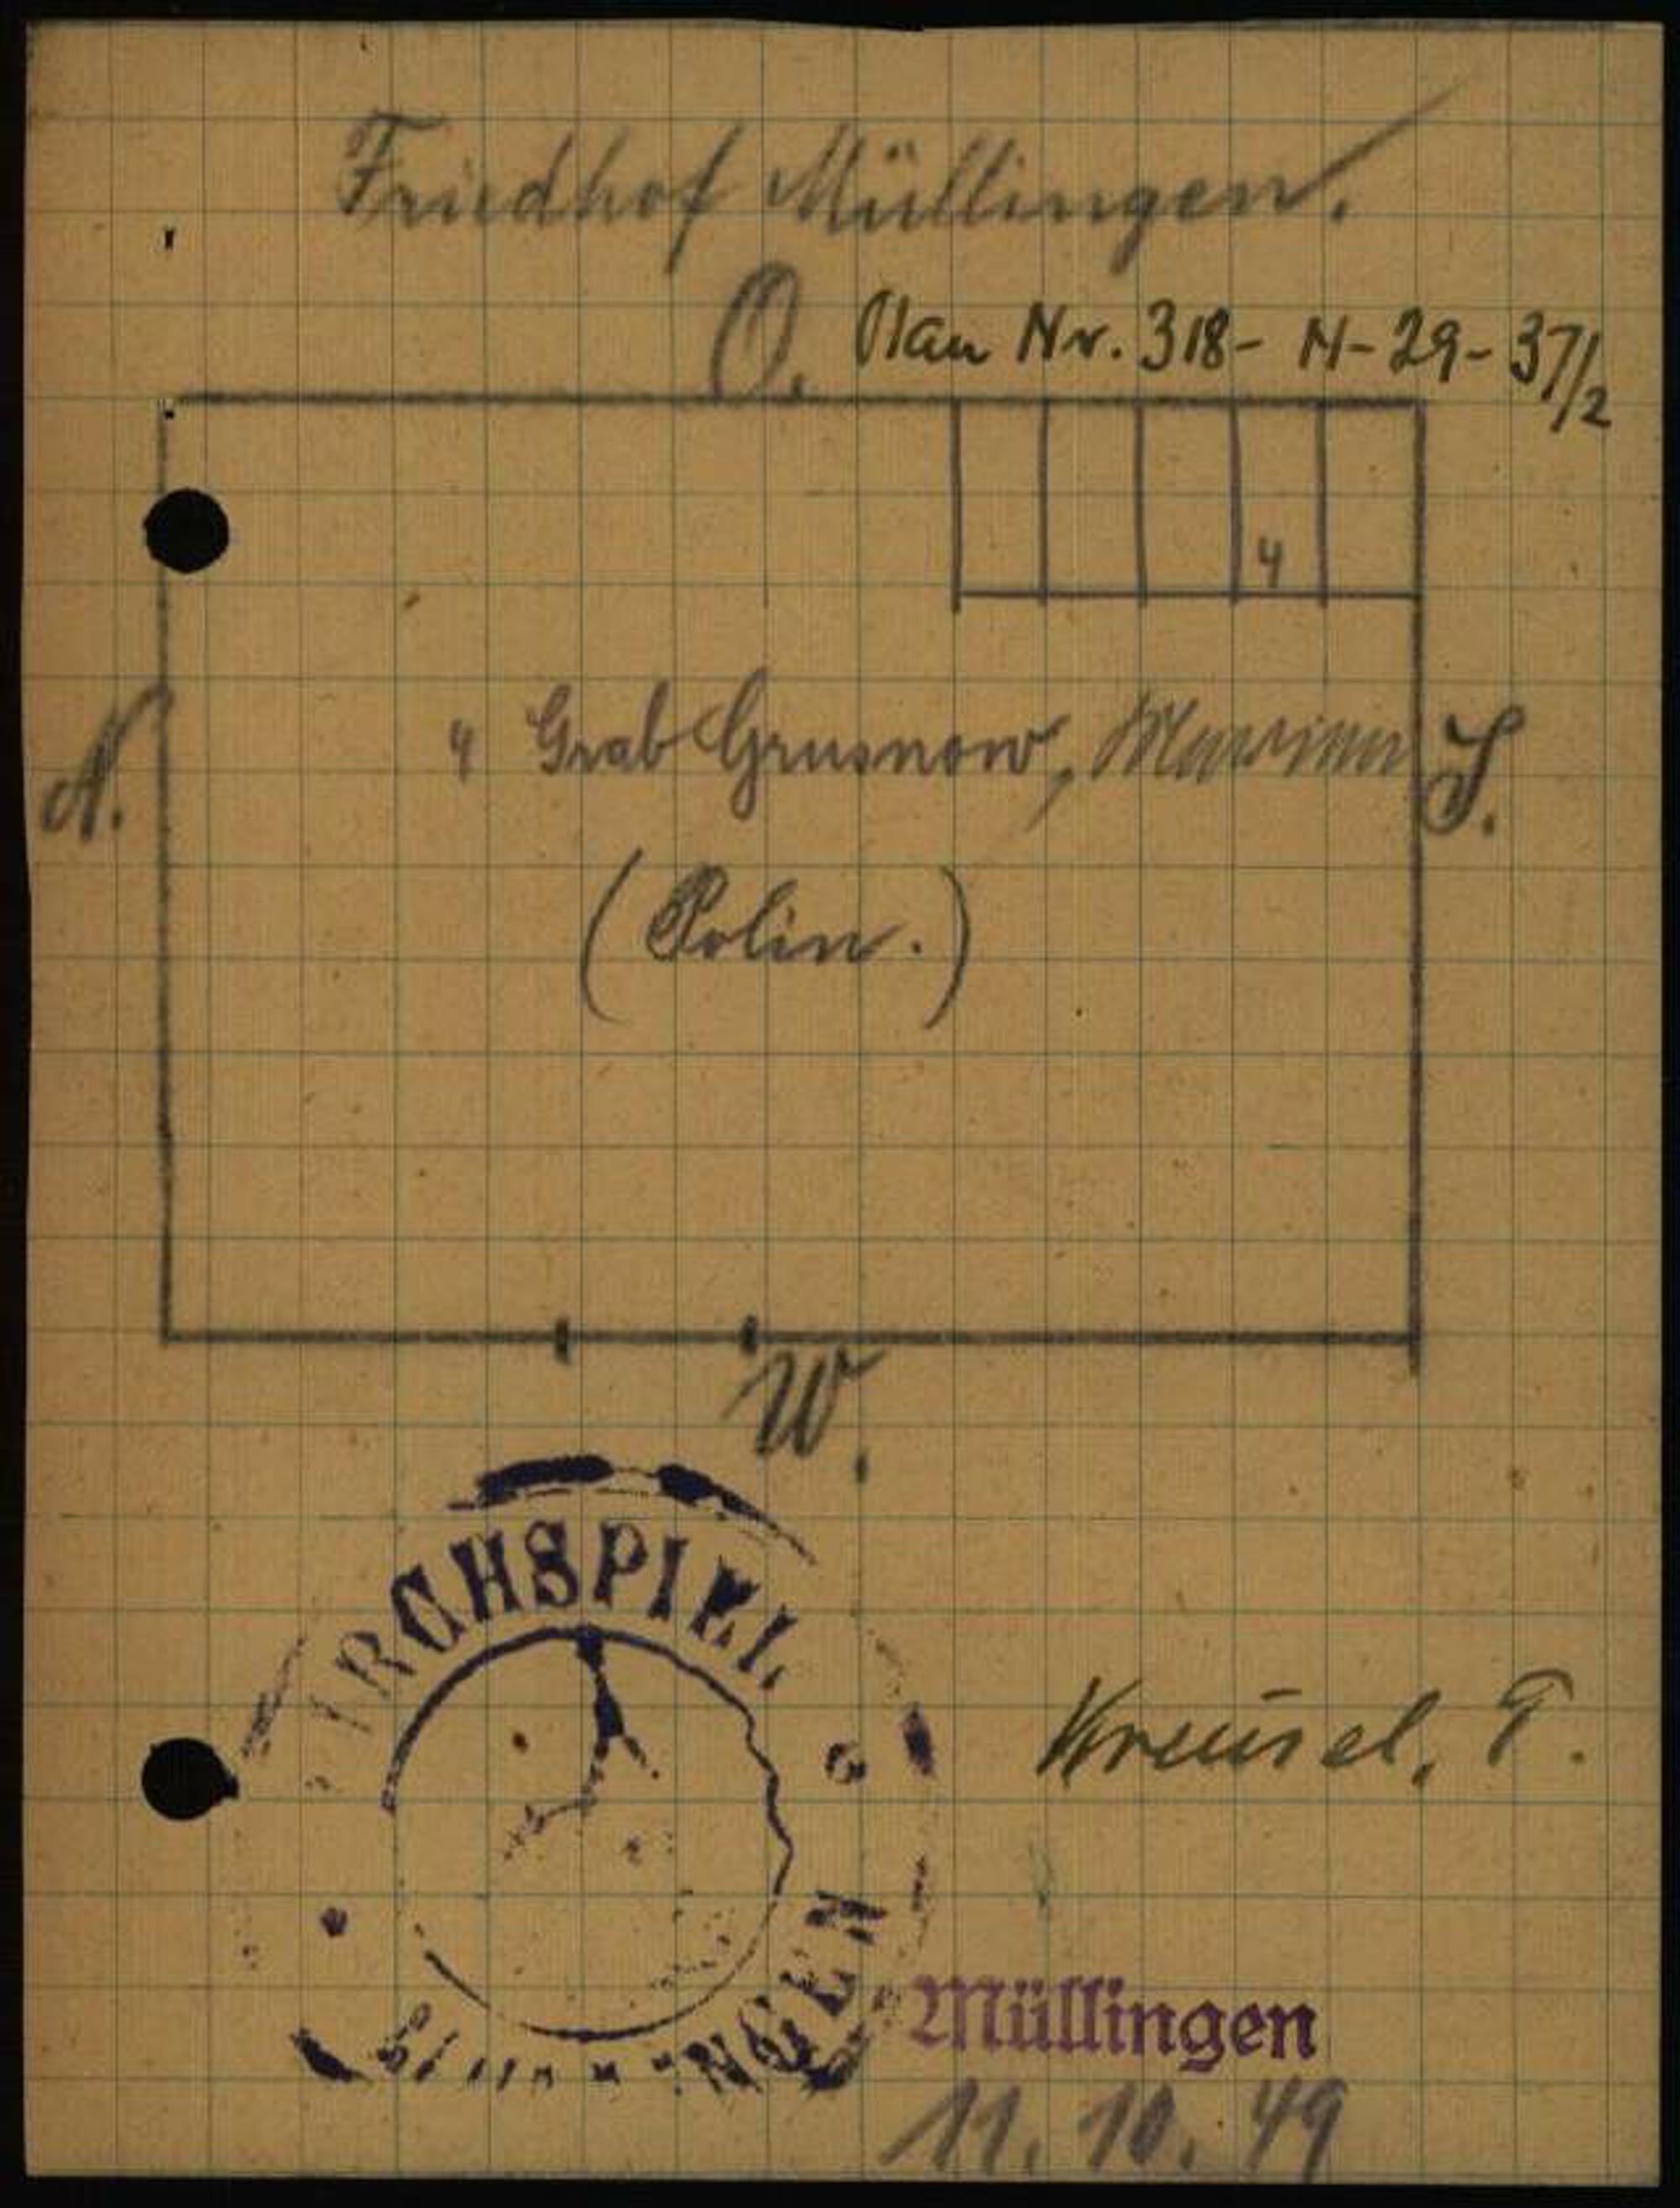 Friedhof Müllingen.
O. Plan Nr. 318- N- 29- 37/2
4
N.
4 Grab Grusnow,
S.
(Polin.)
W.
IRCHSPIEL
NGEN
Kreusel, P.
Müllingen
11. 10. 49